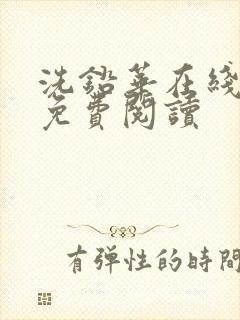 洗鉛華在綫
免費閱讀
有弹性的時間